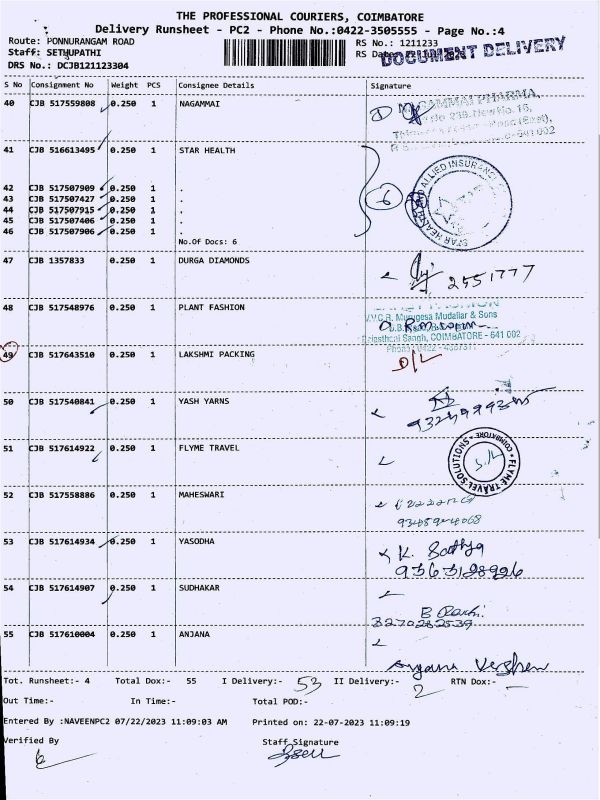 THE PROFESSIONAL COURIERS, COIMBATORE
Delivery Runsheet - PC2 - Phone No.:0422-3505555 - Page No.:4
Route: PONNURANGAM ROAD
RS No.: 1211233
Staff: SETHUPATHI
RS Date
DOCUMENT DELIVERY
DRS No.: DCJB121123304
S No Consignment No Weight PCS Consignee Details Signature
40 CJB 517559808 0.250 1 NAGAMMAI
41 CJB 516613495 0.250 1 STAR HEALTH
42 CJB 517507909 0.250 1 .
43 CJB 517507427 0.250 1 .
44 CJB 517507915 0.250 1 .
45 CJB 517507406 0.250 1 .
46 CJB 517507906 0.250 1 .
6
ALLIED INSURANCE
STAR HEALTH
No.Of Docs: 6
47 CJB 1357833 0.250 1 DURGA DIAMONDS
2551777
48 CJB 517548976 0.250 1 PLANT FASHION
V.V.C.R. Murugesa Mudaliar & Sons
COIMBATORE - 641 002
49 CJB 517643510 0.250 1 LAKSHMI PACKING
D/L
50 CJB 517540841 0.250 1 YASH YARNS
51 CJB 517614922 0.250 1 FLYME TRAVEL
FLYME TRAVEL SOLUTIONS * COIMBATORE *
52 CJB 517558886 0.250 1 MAHESWARI
53 CJB 517614934 0.250 1 YASODHA
K. Sathya
54 CJB 517614907 0.250 1 SUDHAKAR
3270282539
55 CJB 517610004 0.250 1 ANJANA
Tot. Runsheet:- 4 Total Dox:- 55 I Delivery:- 53 II Delivery:- 2 RTN Dox:- —
Out Time:- In Time:- Total POD:-
Entered By :NAVEENPC2 07/22/2023 11:09:03 AM Printed on: 22-07-2023 11:09:19
Verified By Staff Signature